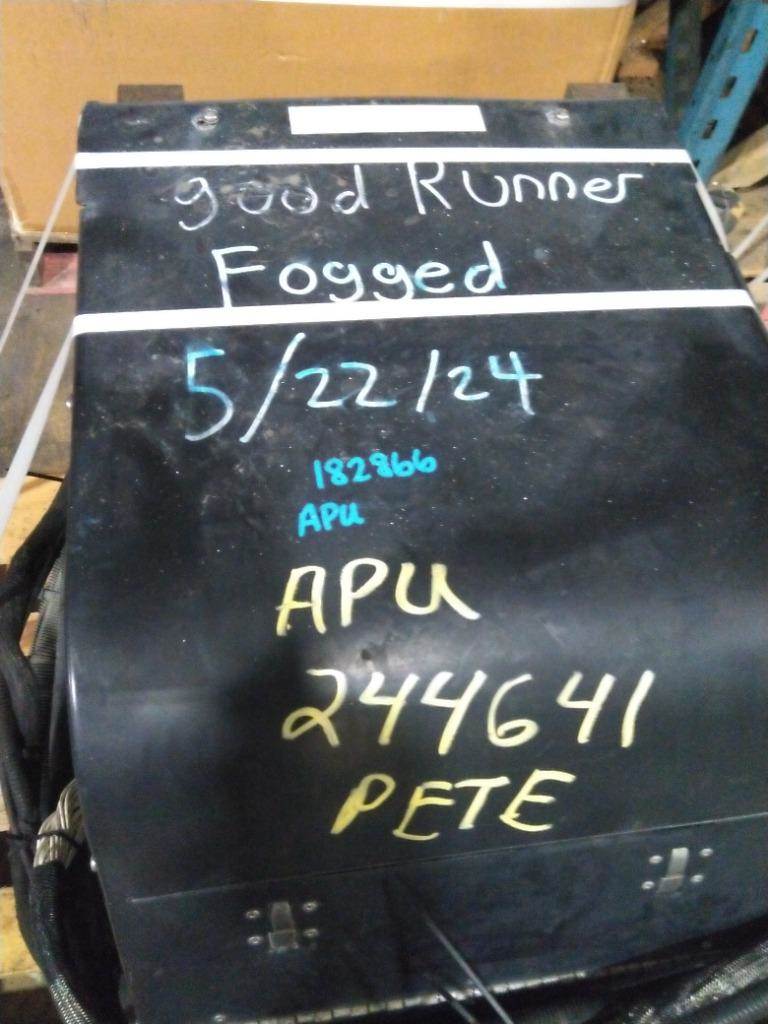 good Runner
Fogged
5/22/24
182866
APU
APU
244641
PETE